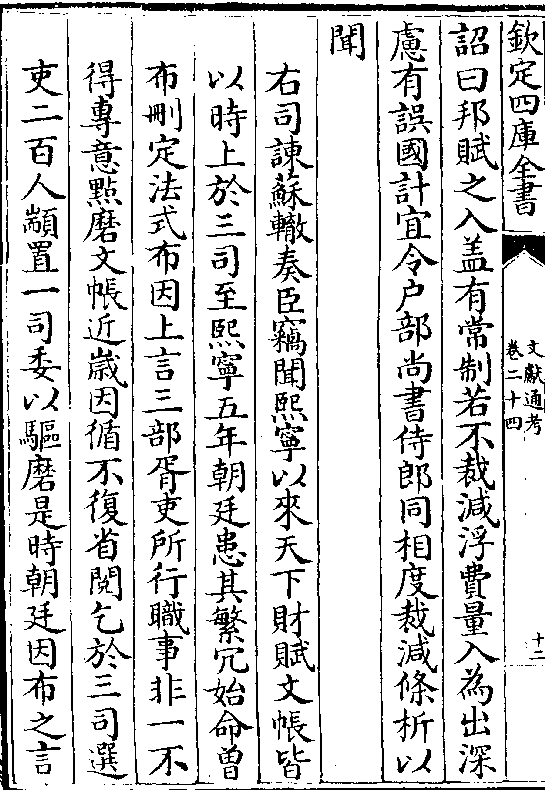 欽定四庫全書
文獻通考
卷二十四
十二
詔曰邦賦之入盖有常制若不裁減浮費量入為出深
慮有誤國計宜令户部尚書侍郎同相度裁減條析以
聞
右司諫蘇轍奏臣竊聞熙寧以來天下財賦文帳皆
以時上於三司至熙寧五年朝廷患其繁冗始命曾
布刪定法式布因上言三部胥吏所行職事非一不
得專意點磨文帳近嵗因循不復省閱乞於三司選
吏二百人顓置一司委以驅磨是時朝廷因布之言